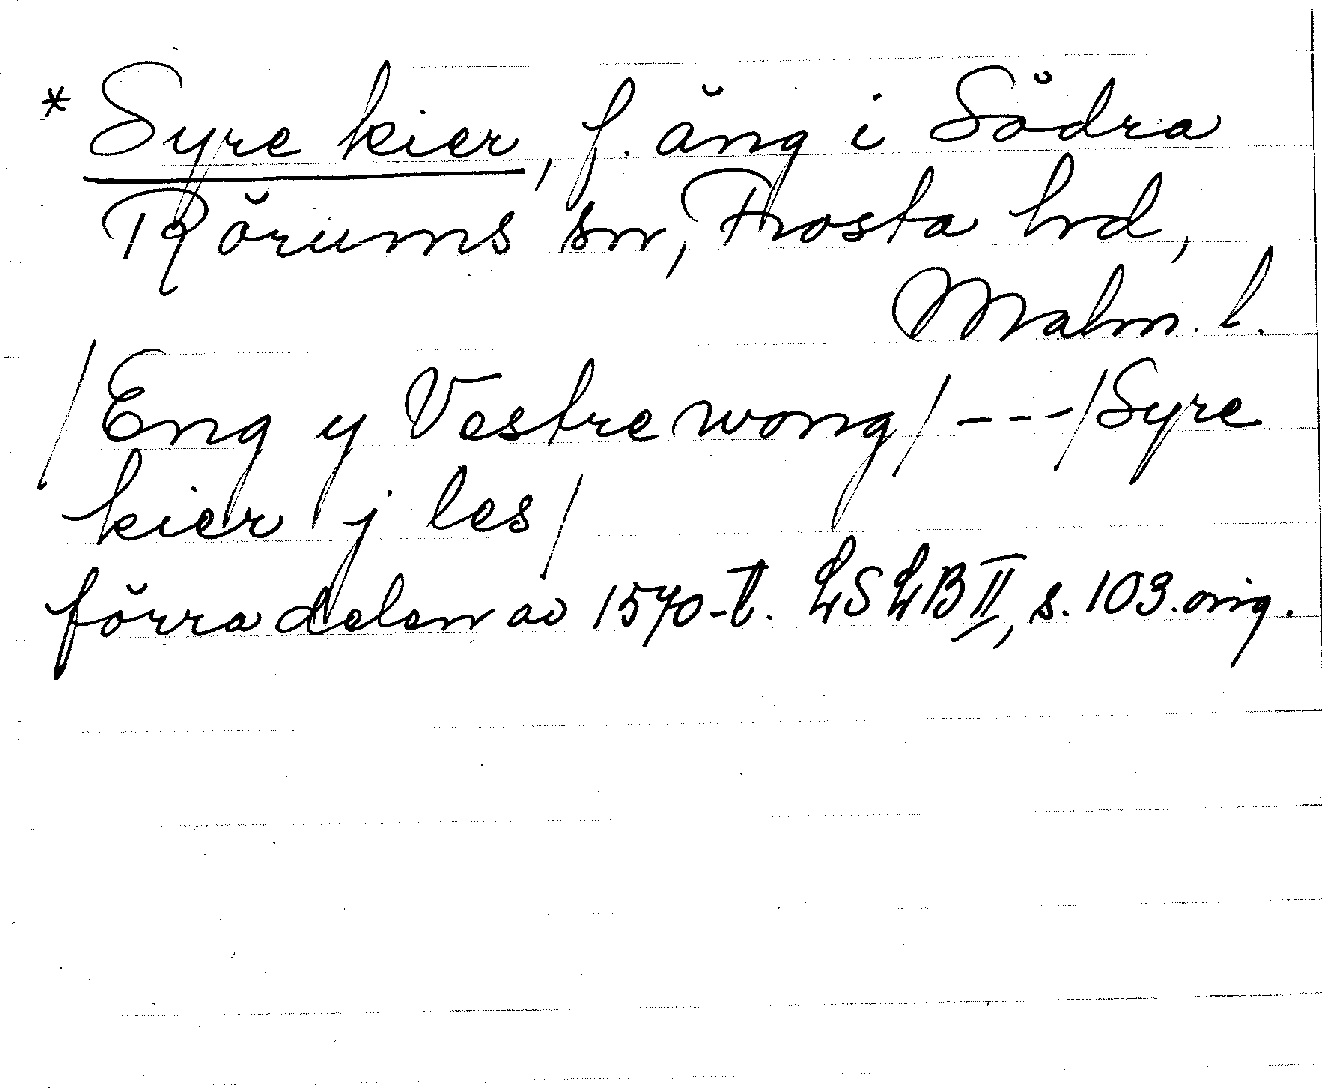 * Syre kier, f. äng i Södra
Rörums sn, Frosta hd,
Malm. l.
/Eng y Vestre wong/ ---/Syre
kier j les/
förra delen av 1570-t. LSLB II, s. 103. orig.